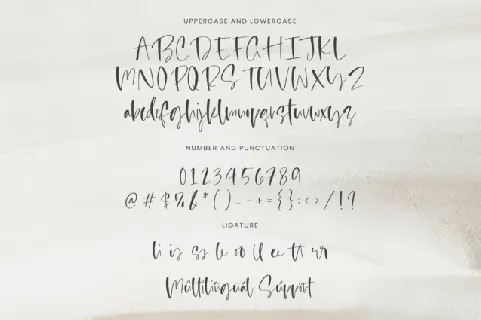 UPPERCASE AND LOWERCASE
ABCDEFGHIJKL
MNOPQRSTUVWXYZ
abcdefghijklmnopqrstuvwxyz
NUMBER AND PUNCTUATION
0123456789
@#$%&*()_-+={}:<>/!?
LIGATURE
li is ss le oo ll ee tt rr
Multilingual Support